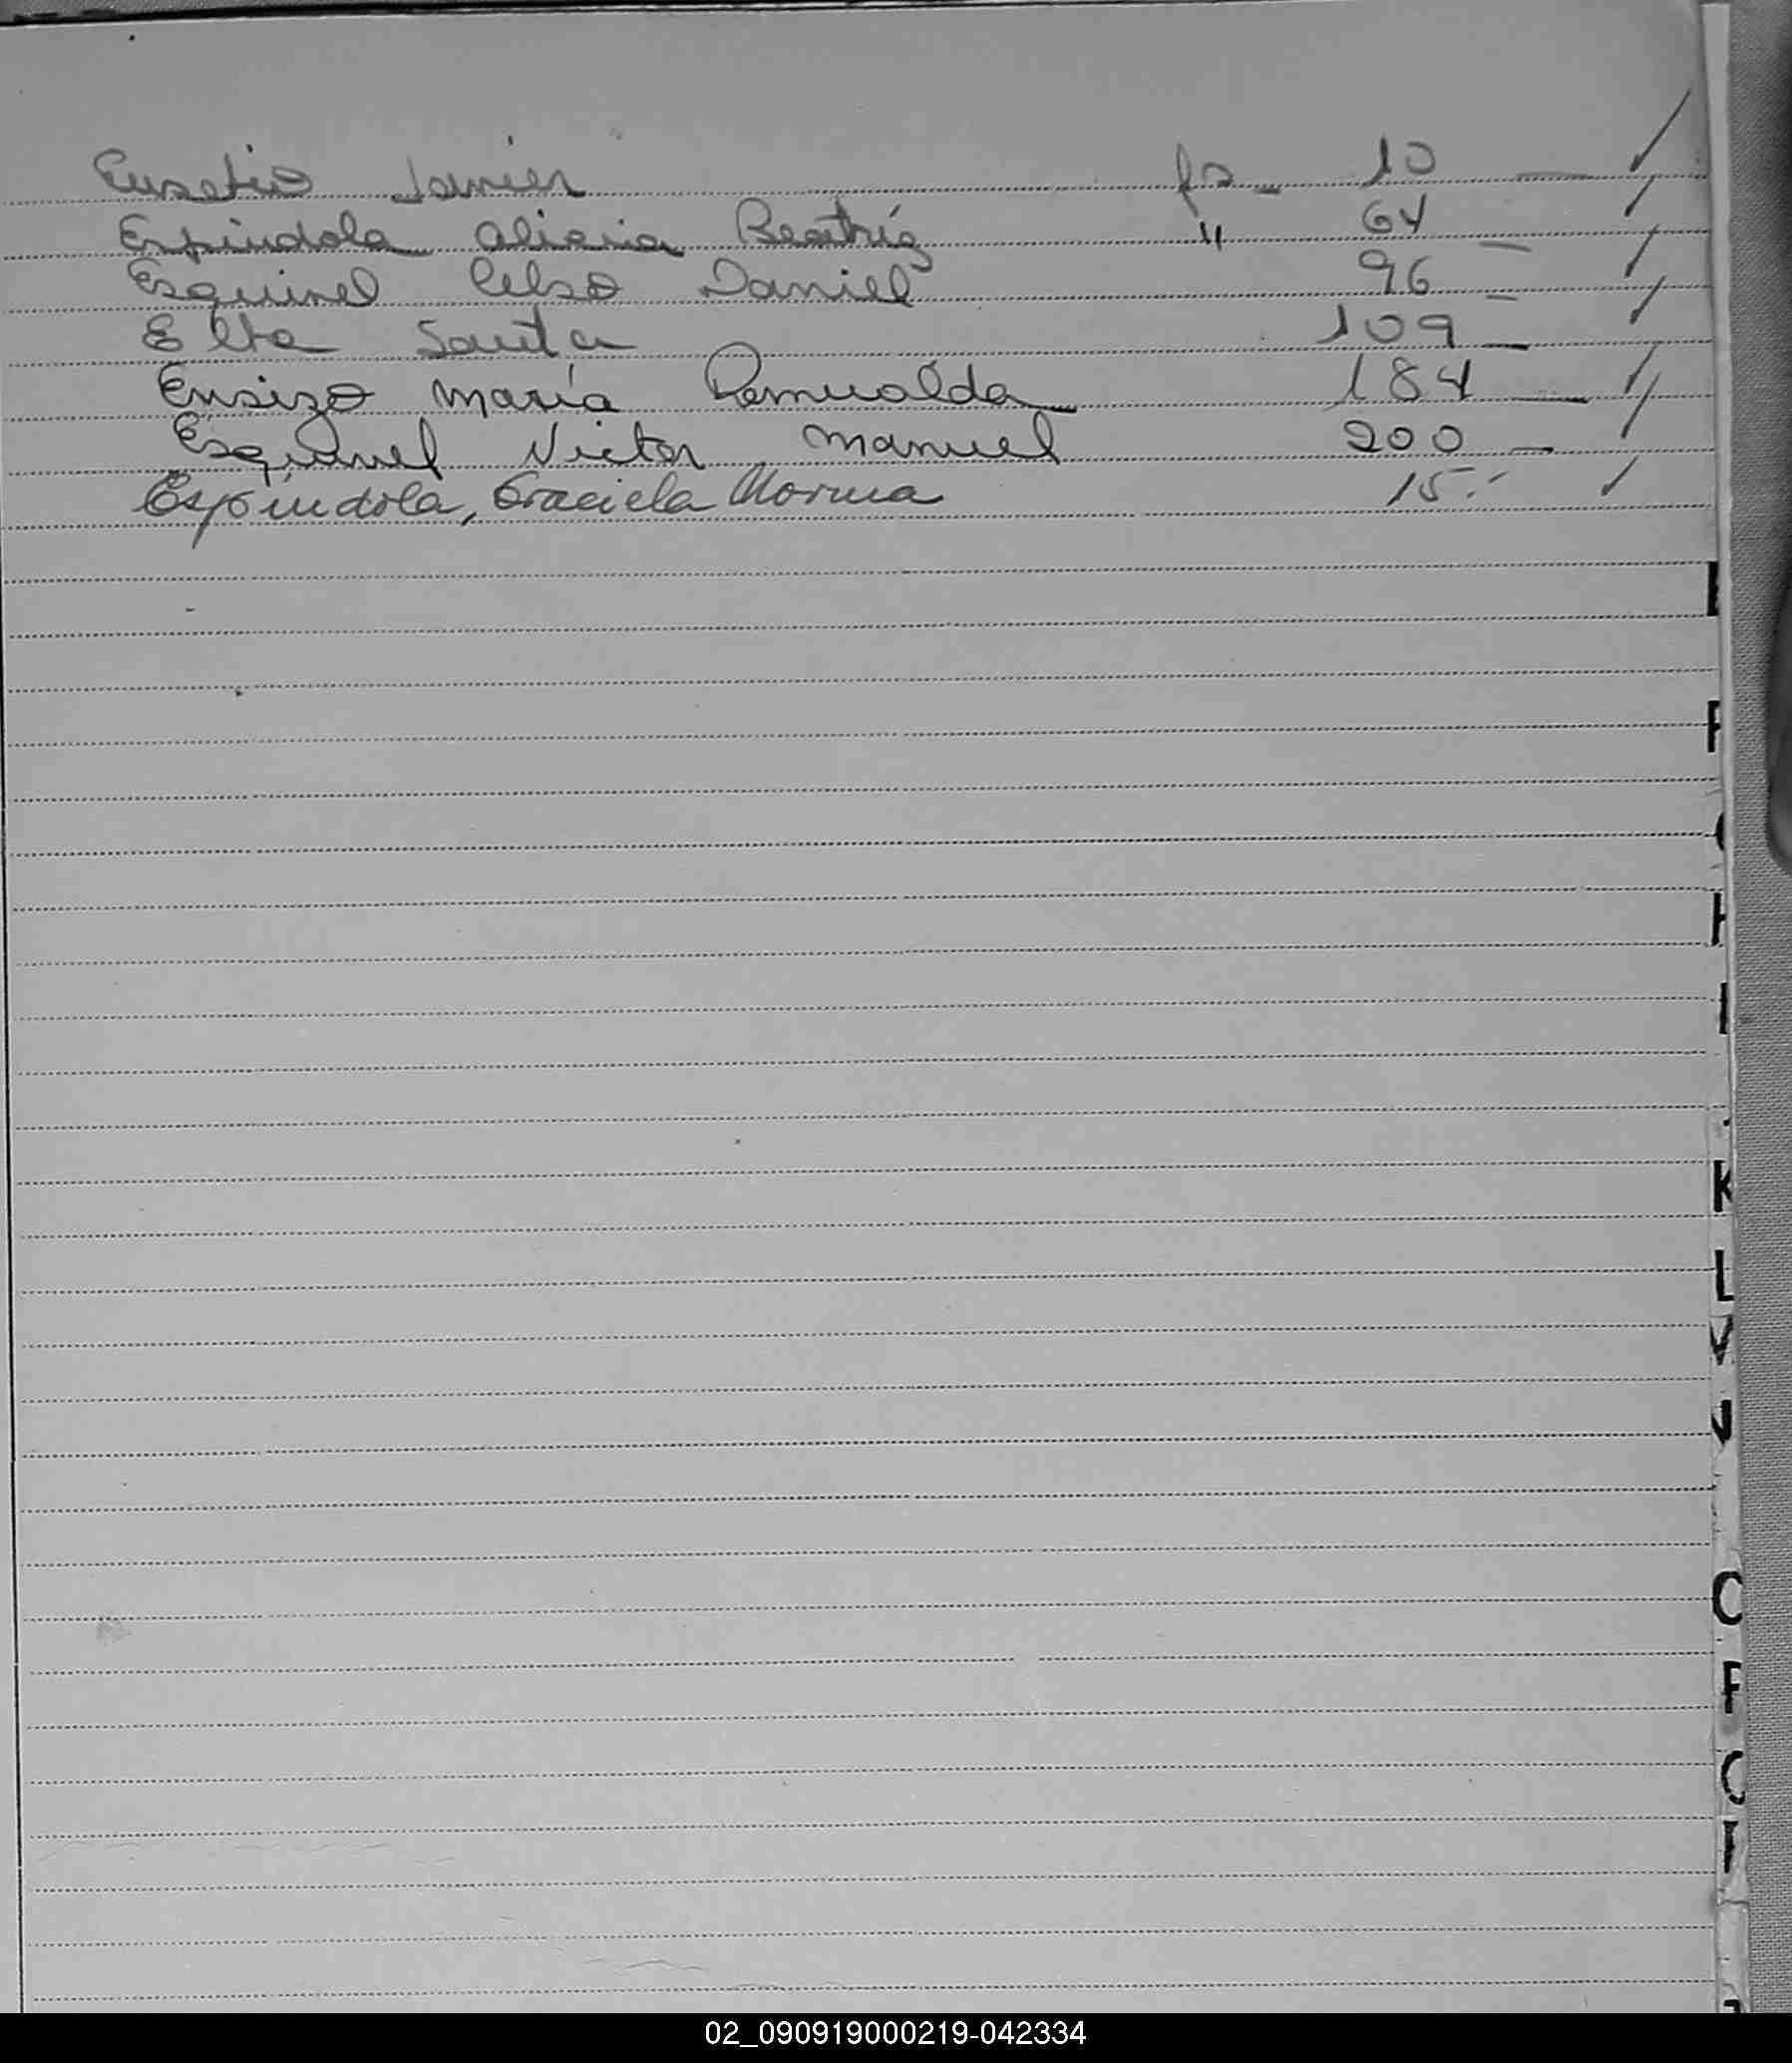 Eusebio Javier fs - 10 — ✓
Espíndola Alicia Beatríz " 64 — ✓
Esquivel Celso Daniel 96 — ✓
Elba Santa 109 — ✓
Ensizo María Romualda 184 — ✓
Esquivel Victor Manuel 200 — ✓
Espíndola, Graciela Norma 15.- ✓
K
L
C
02_090919000219-042334